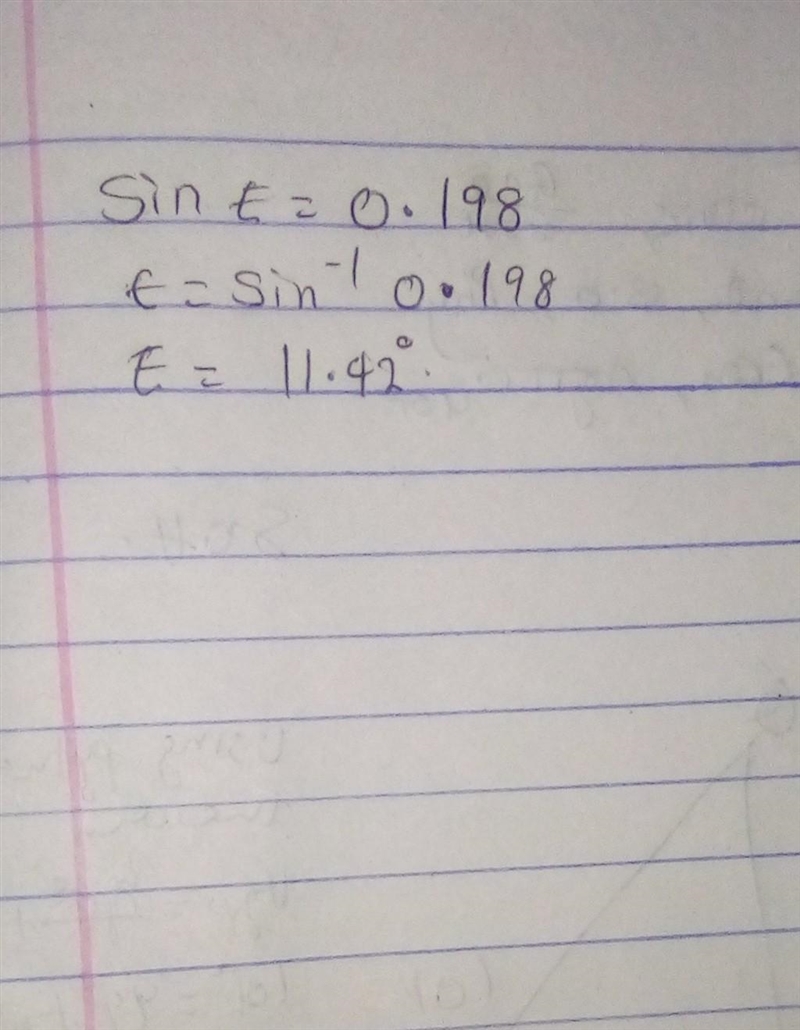 Sin t = 0.198
t = Sin⁻¹ 0.198
t = 11.42°.